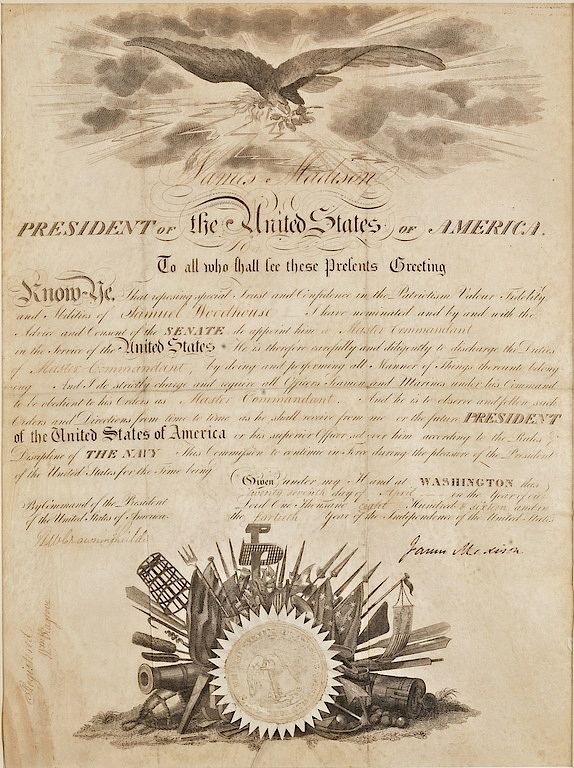 James Madison
PRESIDENT OF the United States OF AMERICA.
To all who shall see these Presents Greeting
Know-Ye, That reposing special Trust and Confidence in the Patriotism Valour Fidelity
and Abilities of Samuel Woodhouse I have nominated and by and with the
Advice and Consent of the SENATE do appoint him a Master Commandant
in the Service of the United States He is therefore carefully and diligently to discharge the Duties
of Master Commandant, by doing and performing all Manner of Things thereunto belong
ing And I do strictly charge and require all Officers Seamen and Marines under his Command
to be obedient to his Orders as Master Commandant. And he is to observe and follow such
Orders and Directions from time to time as he shall receive from me or the future PRESIDENT
of the United States of America or his superior Officer set over him according to the Rules &
Discipline of THE NAVY This Commission to continue in Force during the pleasure of the President
of the United States for the Time being
Given under my Hand at WASHINGTON this
twenty seventh day of April in the Year of our
Lord One Thousand eight Hundred & sixteen and in
the fortieth Year of the Independence of the United States
By Command of the President
of the United States of America.
BW Crowninshield
James Madison
Registered